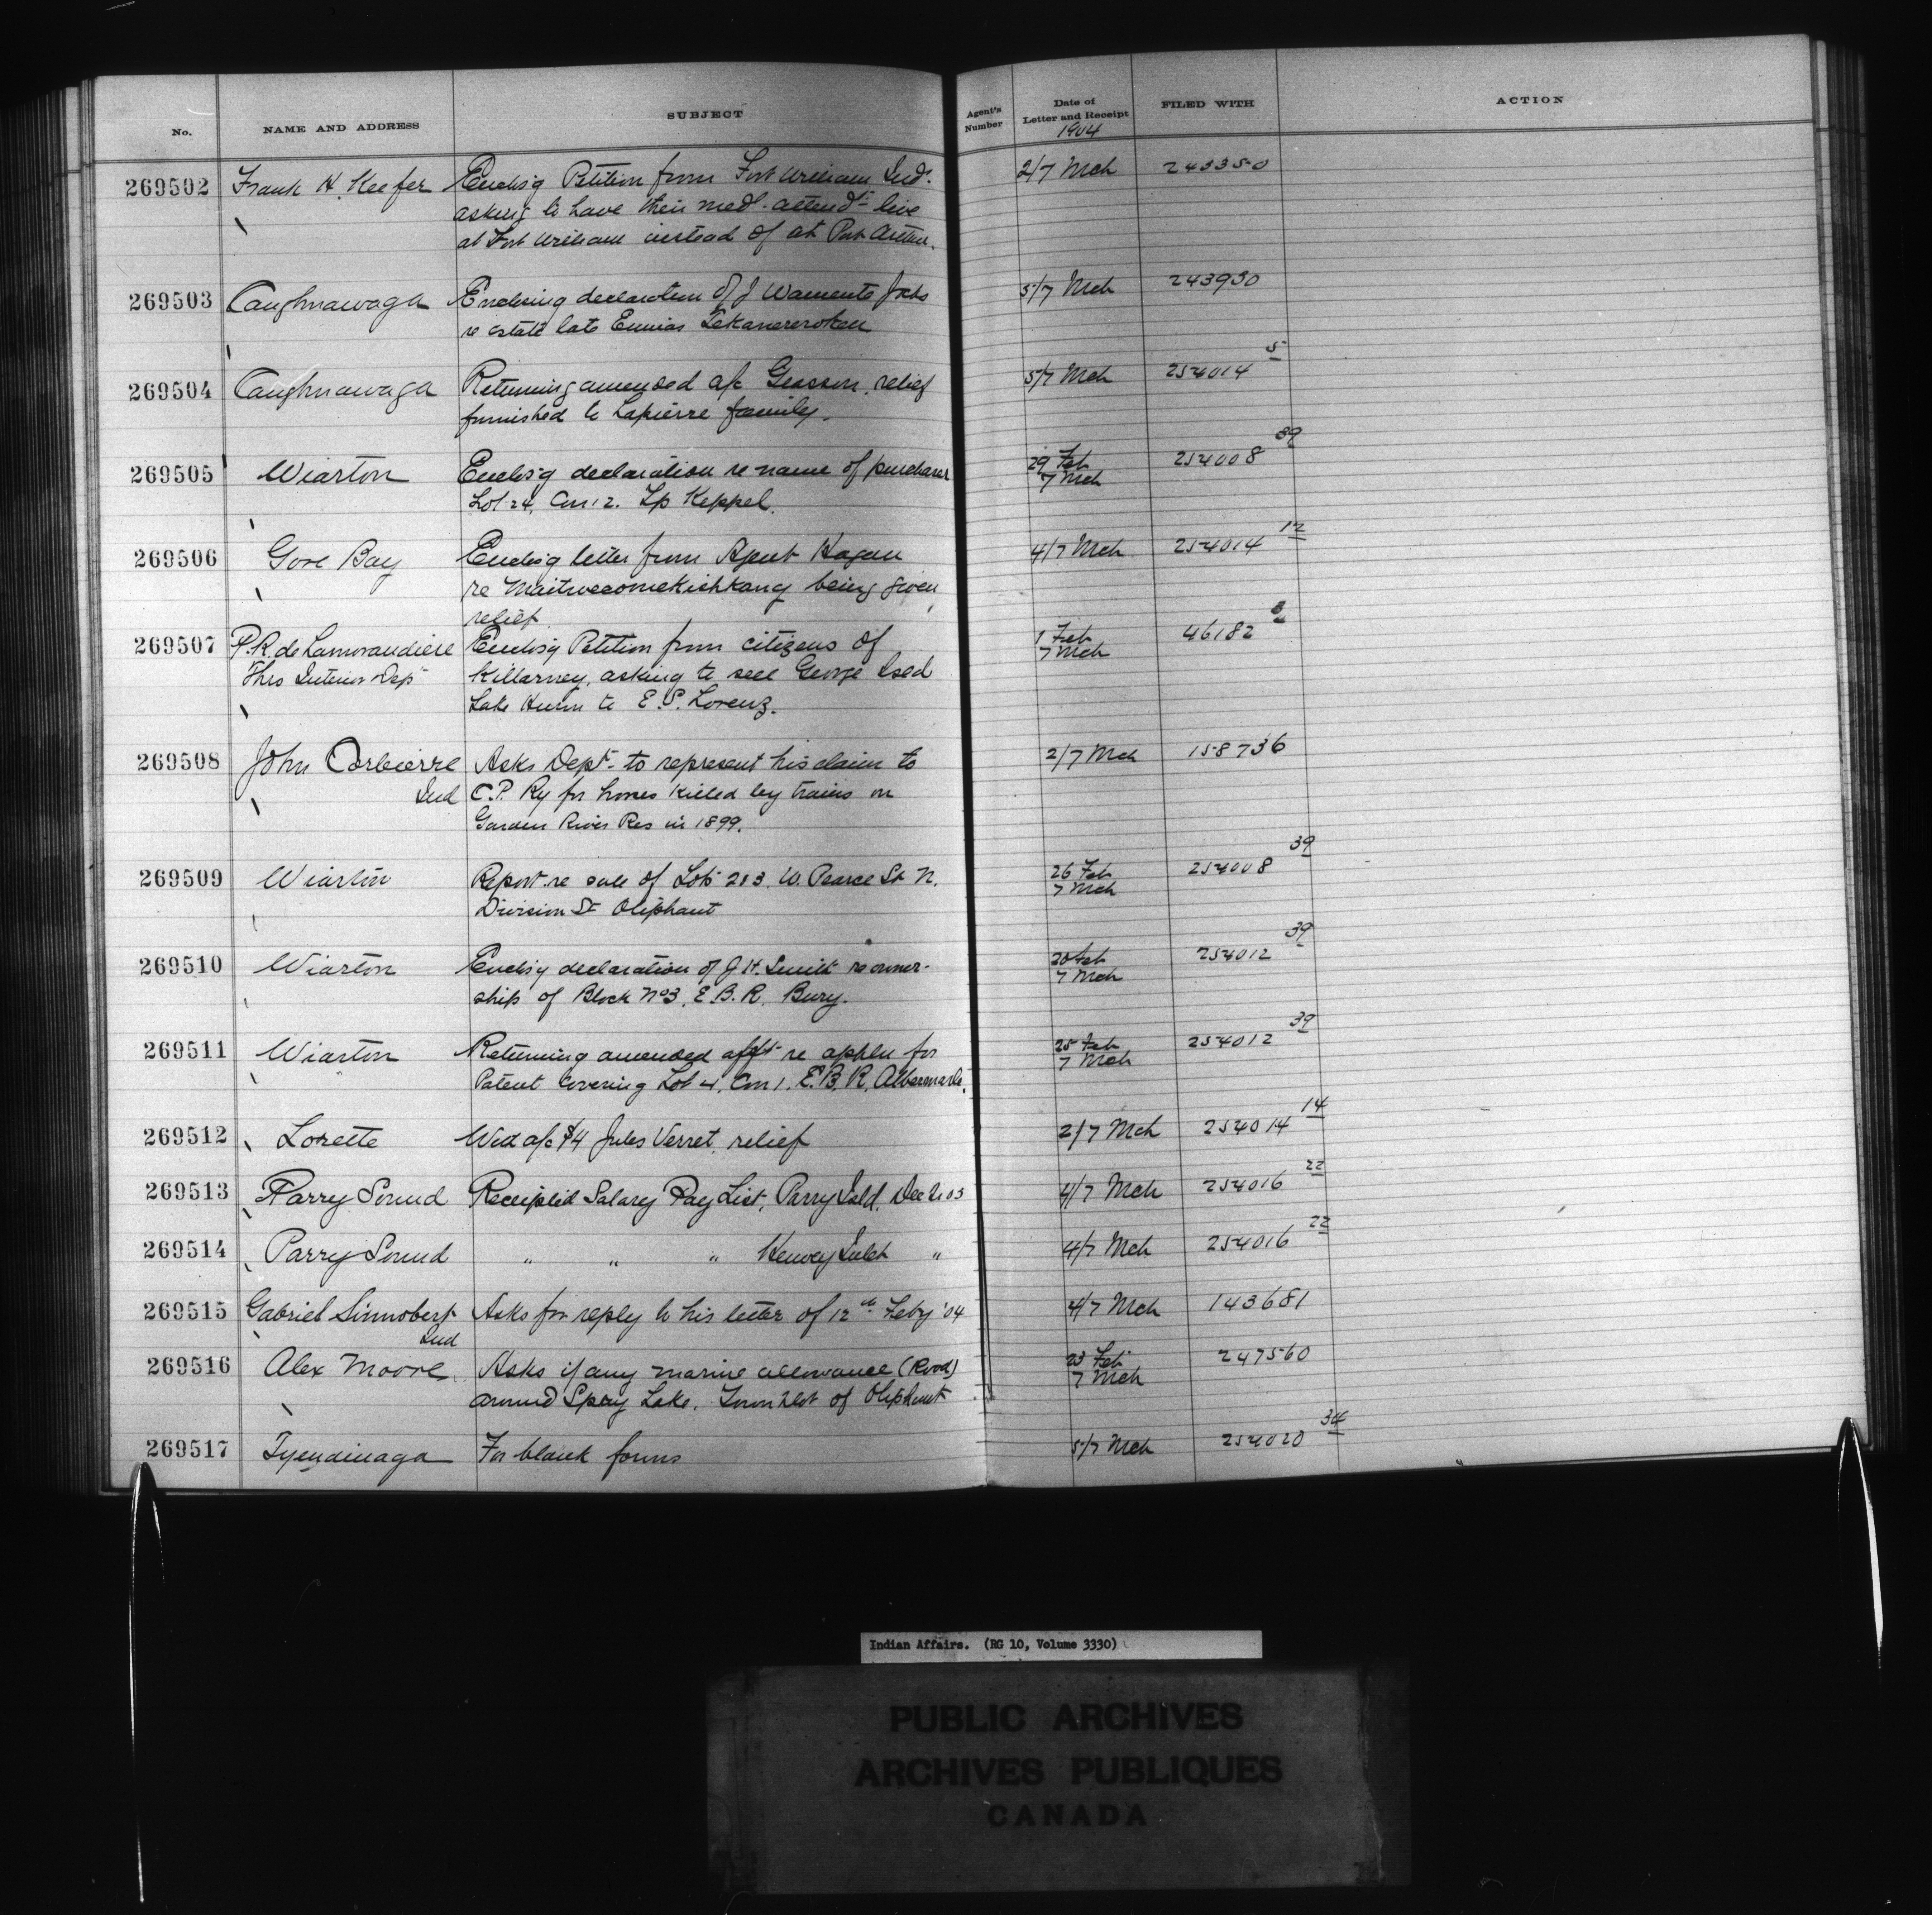 No. NAME AND ADDRESS SUBJECT Agent's Number Date of Letter and Receipt FILED WITH ACTION
1904
269502 Frank H. Keefer Enclos'g Petition from Fort William Inds. 2/7 Mch 243350
asking to have their medl. attendt. live
at Fort William instead of at Port Arthur.
269503 Caughnawaga Enclosing declaration of J Waniente Jcbs 5/7 Mch 243930
re estate late Ennias Tekanereroken
269504 Caughnawaga Returning amended a/c Geasson, relief 5/7 Mch 254014 5
furnished to Lapierre family.
269505 Wiarton Enclos'g declaration re name of purchaser 29 Feb 254008 39
Lot 24, Con 12. Tp Keppel. 7 Mch
269506 Gore Bay Enclos'g letter from Agent Hagan 4/7 Mch 254014 12
re being given
relief.
269507 P. R. de Lamorandiere Enclos'g Petition from citizens of 1 Feb 46182 8
Thro Interior Dept Killarney, asking to sell George Isld 7 Mch
Lake Huron to E. S. Lorenz.
269508 John Corbierre Asks Dept. to represent his claim to 2/7 Mch 158736
Ind C.P. Ry for horses killed by trains on
Garden River Res in 1899.
269509 Wiarton Report re sale of Lots 2&3, W. Pearce St N. 26 Feb 254008 39
Division St Oliphant 7 Mch
269510 Wiarton Enclos'g declaration of J. H. Smith re owner- 20 Feb 254012 39
ship of Block No 3, E. B. R. Bury. 7 Mch
269511 Wiarton Returning amended afft re appln for 25 Feb 254012 39
Patent covering Lot 4, Con 1. E. B. R. Albermarle. 7 Mch
269512 Lorette Wed a/c $4 Jules Verret, relief 2/7 Mch 254014 14
269513 Parry Sound Receipted Salary Pay List, Parry Isld. Dec 2. 03 4/7 Mch 254016 22
269514 Parry Sound " " " Henvey Inlet " 4/7 Mch 254016 22
269515 Gabriel Sinnobert Asks for reply to his letter of 12th Feby '04 4/7 Mch 143681
Ind
269516 Alex Moore Asks if any marine allowance (Road) 23 Feb 247560
around Spry Lake, Town Plot of Oliphant 7 Mch
269517 Tyendinaga For blank forms 5/7 Mch 254020 34
Indian Affairs. (RG 10, Volume 3330)
PUBLIC ARCHIVES
ARCHIVES PUBLIQUES
CANADA